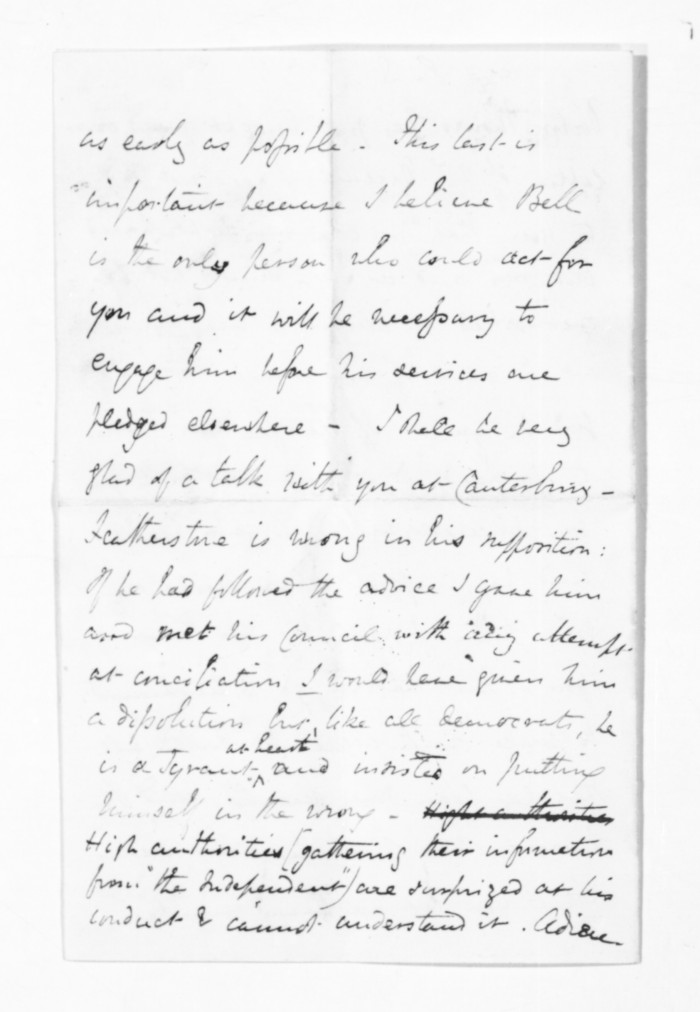 as early as possible - This last is
important because I believe Bell
is the only person who could act for
you and it will be necessary to
engage him before his services are
pledged elsewhere - I shall be very
glad of a talk with you at Canterbury -
Featherstone is wrong in his supposition:
If he had followed the advice I gave him
and met his Council with any attempt
at conciliation I would have given him
a dissolution but, like all democrats, he
is a Tyrant at heart, and insisted on putting
himself in the wrong - High authorities
High authorities (gathering their information
from "the Independent") are surprized at his
conduct & cannot understand it. Adieu